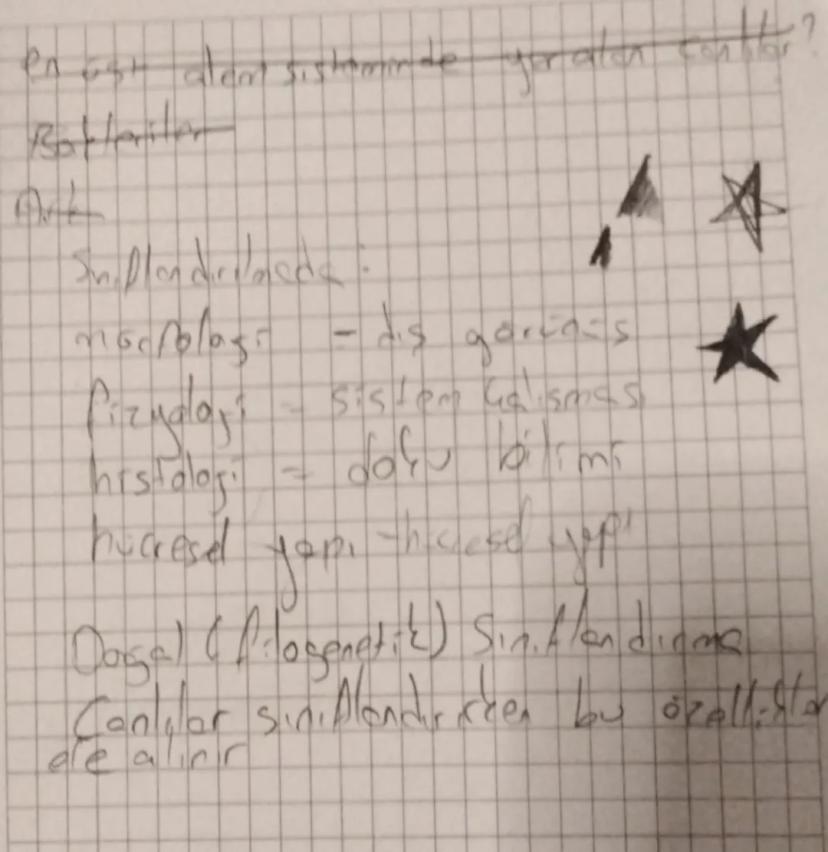 en üst alem sisteminde yer alan canlılar?
Bakteriler
Ark
Sınıflandırılmada:
morfoloji - dış görünüş
fizyoloji - sistem çalışması
histoloji - doku bilimi
hücresel yapı - hücresel yapı
Doğal (filogenetik) Sınıflandırma
Canlılar sınıflandırırken bu özellikler
ele alınır